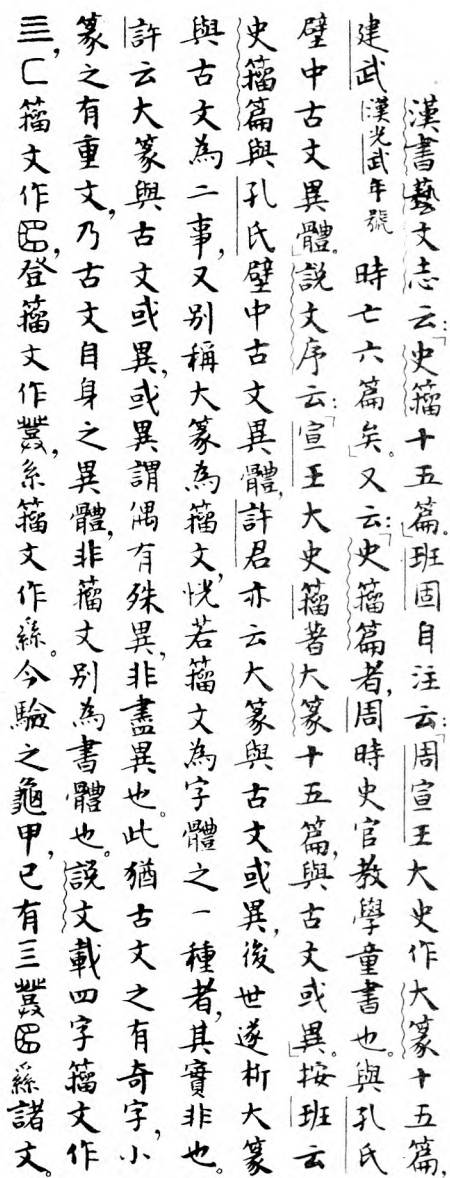 漢書藝文志云：「史籀十五篇。」班固自注云：「周宣王大史作大篆十五篇，
建武漢光武年號時亡六篇矣。」又云：「史籀篇者，周時史官教學童書也。與孔氏
壁中古文異體。」說文序云：「宣王大史籀著大篆十五篇，與古文或異。」按班云
史籀篇與孔氏壁中古文異體，許君亦云大篆與古文或異，後世遂析大篆
與古文為二事，又別稱大篆為籀文，恍若籀文為字體之一種者，其實非也。
許云大篆與古文或異，或異謂偶有殊異，非盡異也。此猶古文之有奇字，小
篆之有重文，乃古文自身之異體，非籀文別為書體也。說文載四字籀文作
亖，匚籀文作，登籀文作，糸籀文作。今驗之龜甲，已有亖諸文。